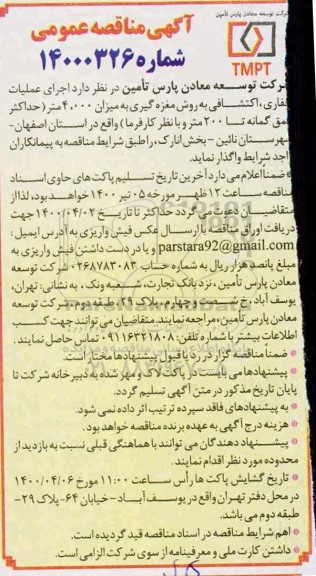 شرکت توسعه معادن پارس تأمین
آگهی مناقصه عمومی
شماره ۱۴۰۰۰۳۲۶
TMPT
شرکت توسعه معادن پارس تأمین در نظر دارد اجرای عملیات
حفاری، اکتشافی به روش مغزه گیری به میزان ۴،۰۰۰ متر (حداکثر
عمق گمانه تا ۲۰۰ متر و با نظر کارفرما) واقع در استان اصفهان-
شهرستان نائین - بخش انارک، را طبق شرایط مناقصه به پیمانکاران
واجد شرایط واگذار نماید.
*ضمناً اعلام می دارد آخرین تاریخ تسلیم پاکت های حاوی اسناد
مناقصه ساعت ۱۲ ظهر مورخه ۰۵ تیر ۱۴۰۰ خواهد بود، لذا از
متقاضیان دعوت می گردد حداکثر تا تاریخ ۱۴۰۰/۰۴/۰۲ جهت
دریافت اوراق مناقصه با ارسال عکس فیش واریزی به آدرس ایمیل:
parstara92@gmail.com و یا در دست داشتن فیش واریزی به
مبلغ پانصد هزار ریال به شماره حساب ۲۶۸۷۸۳۰۸۳ شرکت توسعه
معادن پارس تأمین، نزد بانک تجارت، شعبه ونک، به نشانی: تهران،
یوسف آباد، خ شصت و چهارم، پلاک ۲۹، طبقه دوم، شرکت توسعه
معادن پارس تأمین، مراجعه نمایند. متقاضیان می توانند جهت کسب
اطلاعات بیشتر با شماره تلفن: ۰۹۱۱۶۳۲۱۸۰۸ تماس حاصل نمایند.
* ضمناً مناقصه گزار در رد یا قبول پیشنهادها مختار است.
* پیشنهادها می بایست در پاکت لاک و مهر شده به دبیرخانه شرکت تا
پایان تاریخ مذکور در متن آگهی تسلیم گردد.
* به پیشنهادهای فاقد سپرده ترتیب اثر داده نمی شود.
* هزینه درج آگهی به عهده برنده مناقصه خواهد بود.
* پیشنهاد دهندگان می توانند با هماهنگی قبلی نسبت به بازدید از
محدوده مورد نظر اقدام نمایند.
* تاریخ گشایش پاکت ها رأس ساعت ۱۱:۰۰ مورخ ۱۴۰۰/۰۴/۰۶
در محل دفتر تهران واقع در یوسف آباد- خیابان ۶۴- پلاک ۲۹-
طبقه دوم می باشد.
* اهم شرایط مناقصه در اسناد مناقصه قید گردیده است.
* داشتن کارت ملی و معرفینامه از سوی شرکت الزامی است.